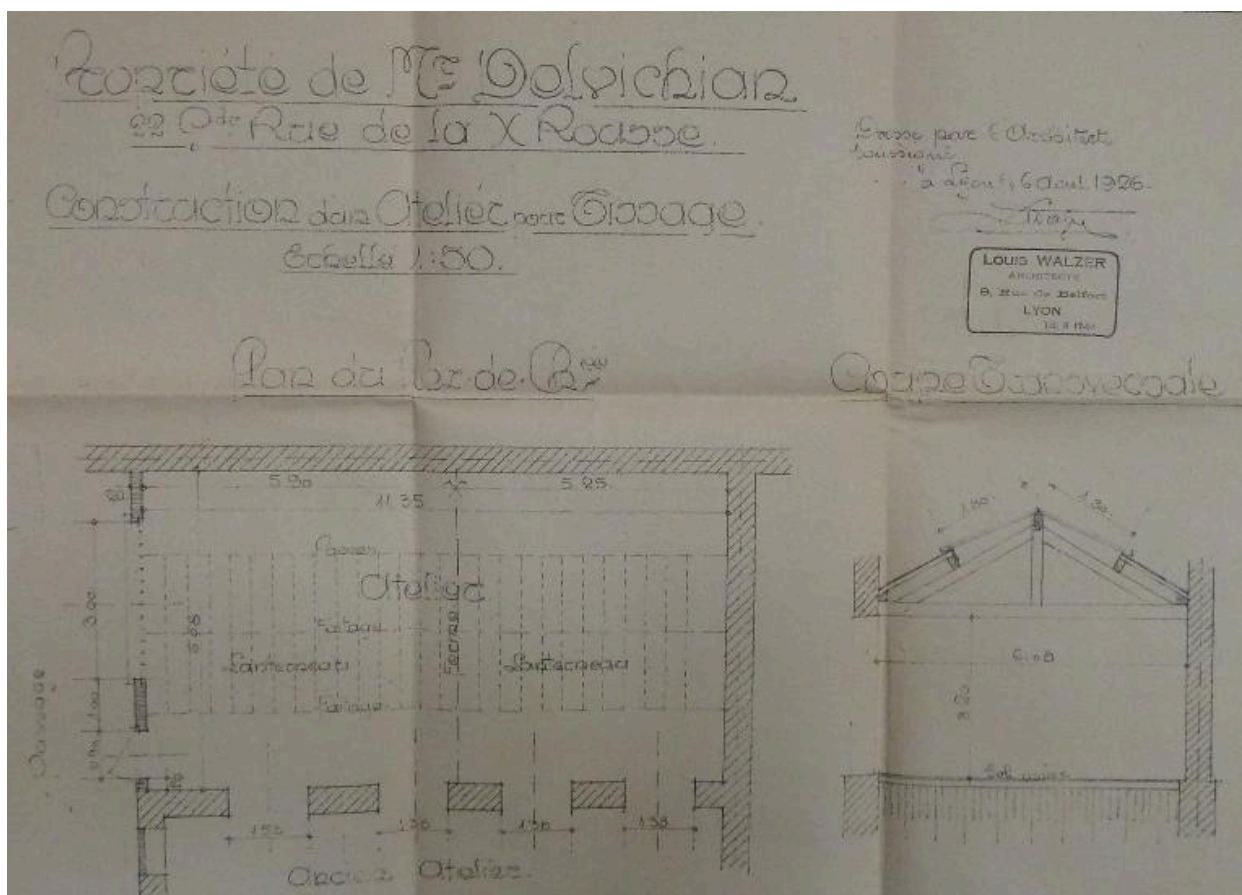 Propriété de Mr Delvichian
22 Gde Rue de la X Rousse.
Construction d'un Atelier pour Tissage.
Echelle 1:50.
Dressé par l'Architecte
soussigné
à Lyon le 6 Aout 1926.
LOUIS WALZER
ARCHITECTE
9, Rue de Belfort
LYON
Plan du Rez-de-Ch
Coupe Transversale
5.90
5.25
11.35
Pannes
Atelier
Faitage
Ferme
Lanterneau
Lanterneau
3.00
1.00
Passage
1.50
1.30
1.30
1.30
Ancien Atelier.
1.80
1.80
6.08
3.20